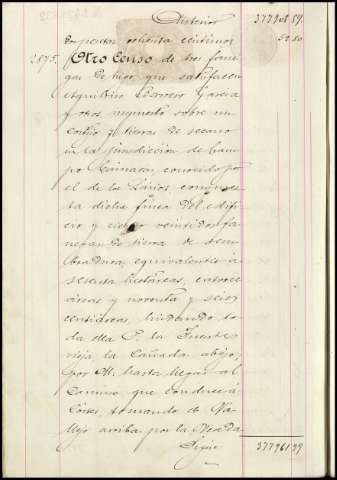 Anterior 377908 59
pesetas ochenta céntimos 52 80
2875. Otro Censo de tres fane
gas de trigo que satisfacen
García
y otros impuesto sobre un
cortijo y tierras de secano
en la jurisdicción de Cam
po Cámara, conocido por
el de los Linios, compues
ta dicha finca del edifi
cio y ciento veintidos fa
negas de tierra de sem
bradura, equivalentes á
sesenta hectáreas, catorce
áreas y noventa y seis
centiáreas, lindando to
da ella P. la Fuente
vieja la Cañada abajo;
por M. hasta llegar al
Camino que conduce á
Cortes, tomando el Va
llejo arriba por la
Sigue 377961 39